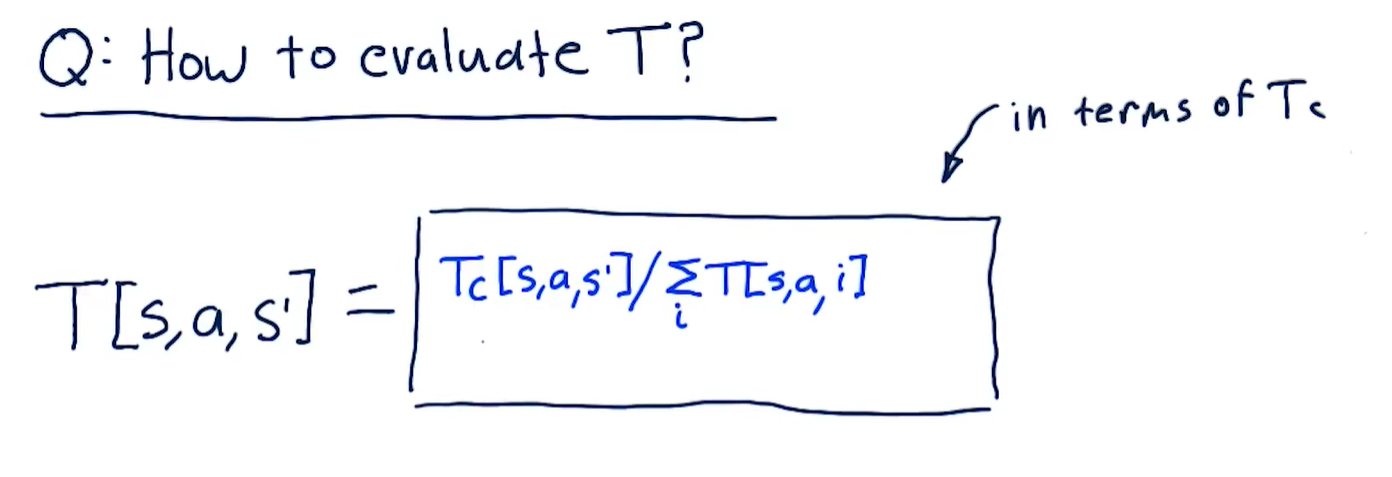 Q: How to evaluate T?
in terms of Tc
T[s,a,s'] = Tc[s,a,s']/∑T[s,a,i]
i